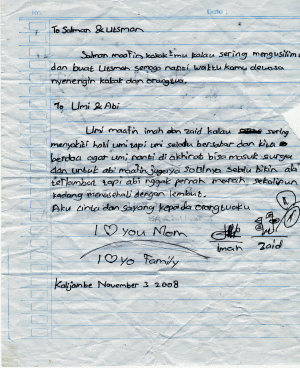 To Salman & Utsman
Salman maafin kakak²mu kalau sering mengusilim
dan buat Utsman semoga nanti waktu kamu dewasa
nyenengin kakak dan orangtua.
To Umi & Abi
Umi maafin imah dan zaid kalau sering
menyakiti hati umi tapi umi selalu bersabar dan bisa
berdoa agar umi nanti di akhirat bisa masuk surga
dan untuk abi maafin jugaya selalu bikin abi
terlambat tapi abi nggak pernah marah sekalipun
kadang menasehati dengan lembut.
Aku cinta dan sayang kepada orangtuaku
I ♡ You Mom
I ♡ Yo Family
Imah Zaid
Kalijambe November 3 2008